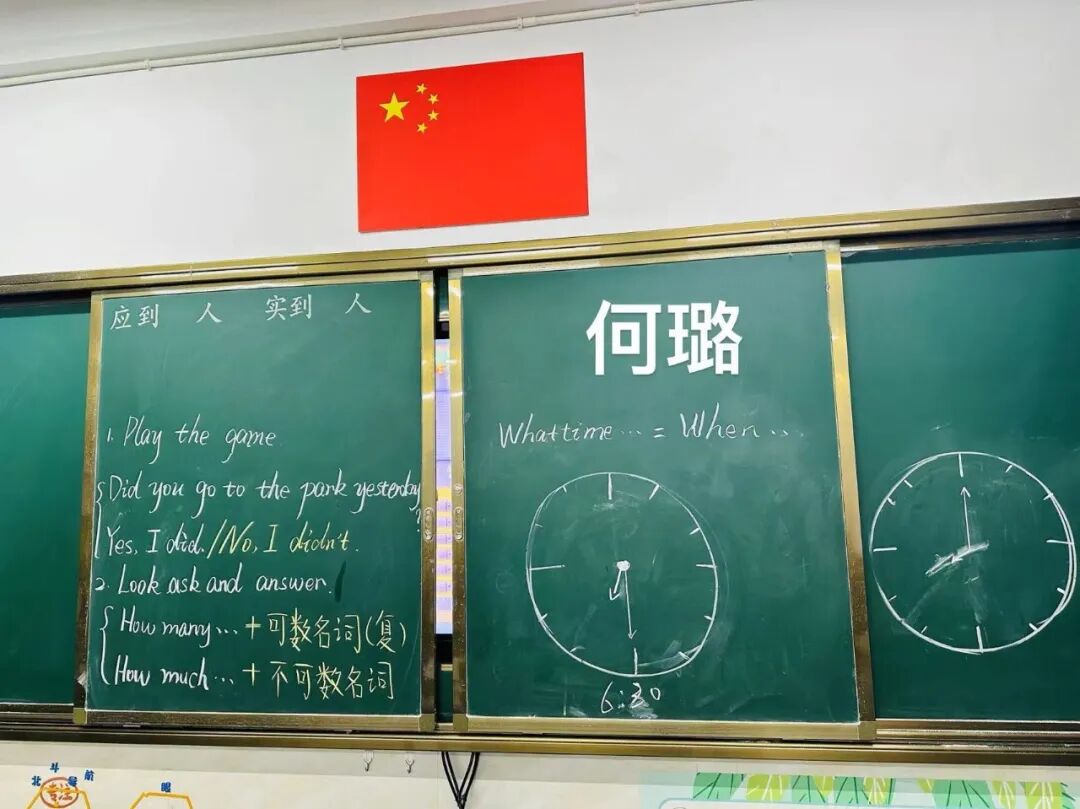 应到 人 实到 人
1. Play the game.
Did you go to the park yesterday?
Yes, I did./No, I didn't.
2. Look ask and answer.
How many... + 可数名词(复)
How much... + 不可数名词
何璐
What time... = When...
6:30
北斗导航
眼